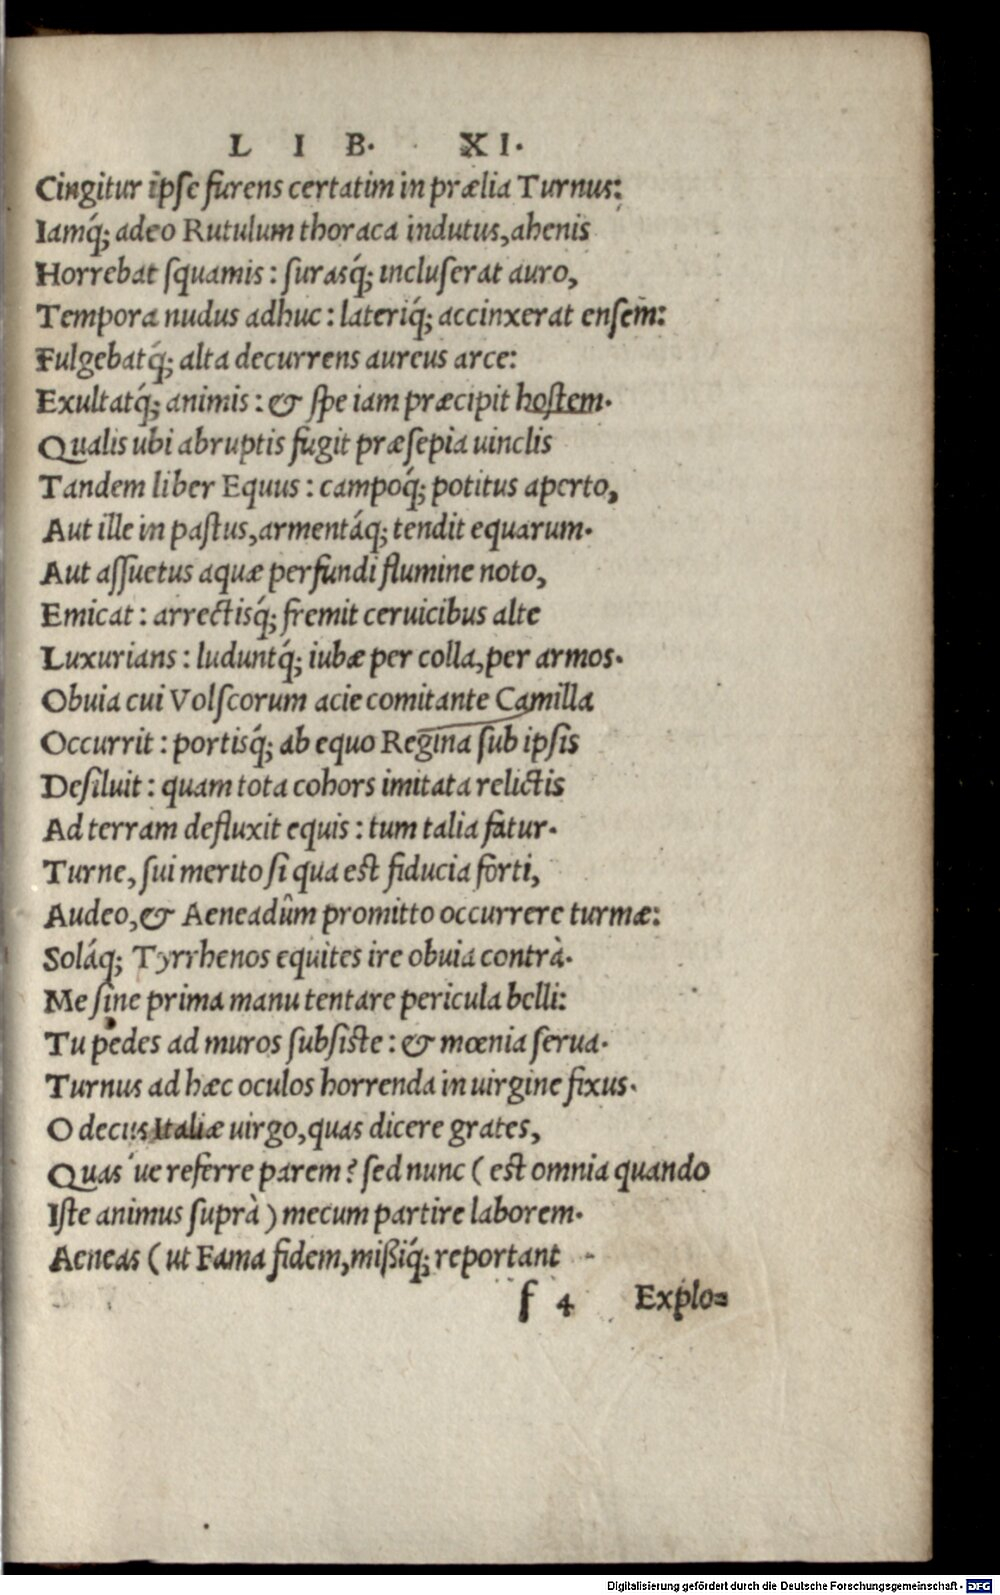 LIB. XI.
Cingitur ipse furens certatim in prælia Turnus:
Iamq́; adeo Rutulum thoraca indutus, ahenis
Horrebat squamis: surasq́; incluserat auro,
Tempora nudus adhuc: lateriq́; accinxerat ensem:
Fulgebatq́; alta decurrens aureus arce:
Exultatq́; animis: & spe iam præcipit hostem.
Qualis ubi abruptis fugit præsepia uinclis
Tandem liber Equus: campoq́; potitus aperto,
Aut ille in pastus, armentáq; tendit equarum.
Aut assuetus aquæ perfundi flumine noto,
Emicat: arrectisq́; fremit ceruicibus alte
Luxurians: luduntq́; iubæ per colla, per armos.
Obuia cui Volscorum acie comitante Camilla
Occurrit: portisq́; ab equo Regina sub ipsis
Desiluit: quam tota cohors imitata relictis
Ad terram defluxit equis: tum talia fatur.
Turne, sui merito si qua est fiducia forti,
Audeo, & Aeneadûm promitto occurrere turmæ:
Soláq; Tyrrhenos equites ire obuia contrà.
Me sine prima manu tentare pericula belli:
Tu pedes ad muros subsiste: & mœnia serua.
Turnus ad hæc oculos horrenda in uirgine fixus.
O decus Italiæ uirgo, quas dicere grates,
Quas 've referre parem? sed nunc (est omnia quando
Iste animus suprà) mecum partire laborem.
Aeneas (ut Fama fidem, mißiq́; reportant
f 4 Explo=
Digitalisierung gefördert durch die Deutsche Forschungsgemeinschaft - DFG